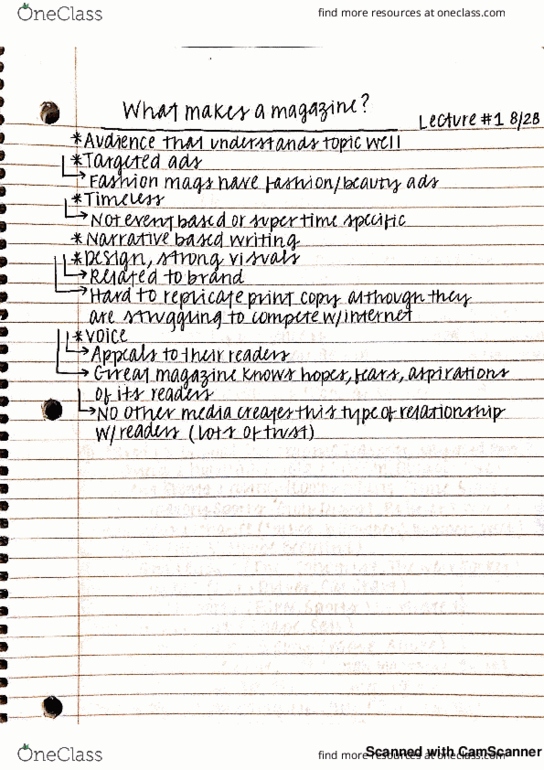 OneClass
find more resources at oneclass.com
What makes a magazine?
Lecture #1 8/28
*Audience that understands topic well
*Targeted ads
Fashion mags have fashion/beauty ads
*Timeless
Not event based or super time specific
*Narrative based writing
*Design, strong visuals
Related to brand
Hard to replicate print copy although they
are struggling to compete w/internet
*voice
Appeals to their readers
Great magazine knows hopes, fears, aspirations
of its readers
No other media creates this type of relationship
w/readers (lots of trust)
OneClass
find more resources at oneclass.com
Scanned with CamScanner